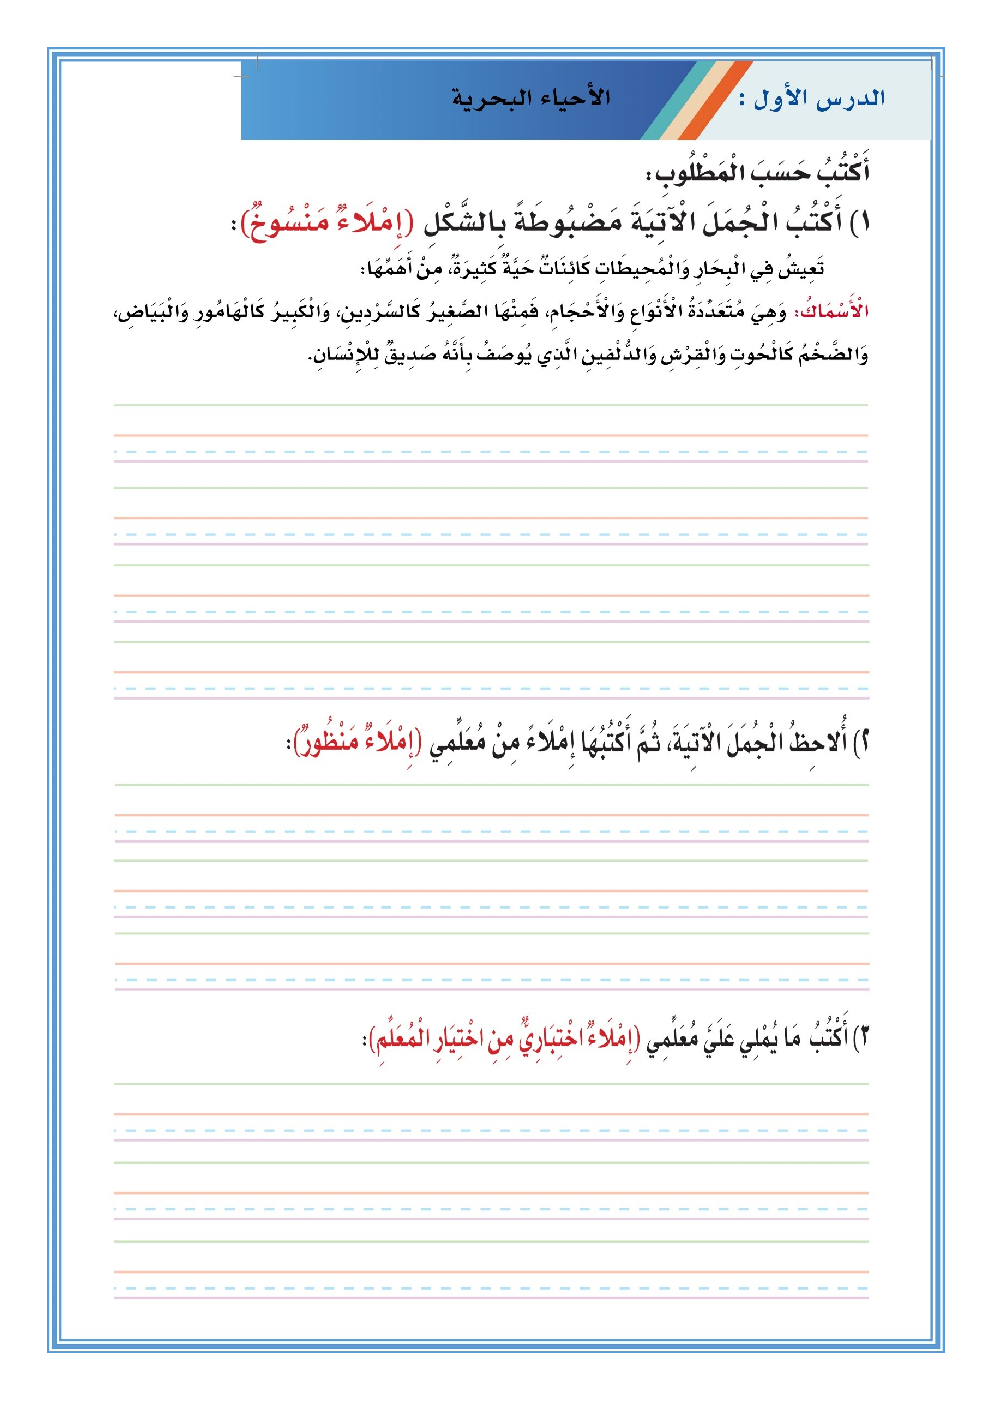 الدرس الأول :
الأحياء البحرية
أَكْتُبُ حَسَبَ الْمَطْلُوبِ:
١) أَكْتُبُ الْجُمَلَ الْآتِيَةَ مَضْبُوطَةً بِالشَّكْلِ (إِمْلَاءٌ مَنْسُوخٌ):
تَعِيشُ فِي الْبِحَارِ وَالْمُحِيطَاتِ كَائِنَاتٌ حَيَّةٌ كَثِيرَةٌ، مِنْ أَهَمِّهَا:
الْأَسْمَاكُ: وَهِيَ مُتَعَدِّدَةُ الْأَنْوَاعِ وَالْأَحْجَامِ، فَمِنْهَا الصَّغِيرُ كَالسَّرْدِينِ، وَالْكَبِيرُ كَالْهَامُورِ وَالْبَيَاضِ،
وَالضَّخْمُ كَالْحُوتِ وَالْقِرْشِ وَالدُّلْفِينِ الَّذِي يُوصَفُ بِأَنَّهُ صَدِيقٌ لِلْإِنْسَانِ.
٢) أُلاحِظُ الْجُمَلَ الْآتِيَةَ، ثُمَّ أَكْتُبُهَا إِمْلَاءً مِنْ مُعَلِّمِي (إِمْلَاءٌ مَنْظُورٌ):
٣) أَكْتُبُ مَا يُمْلِي عَلَيَّ مُعَلِّمِي (إِمْلَاءٌ اخْتِبَارِيٌّ مِنِ اخْتِيَارِ الْمُعَلِّمِ):